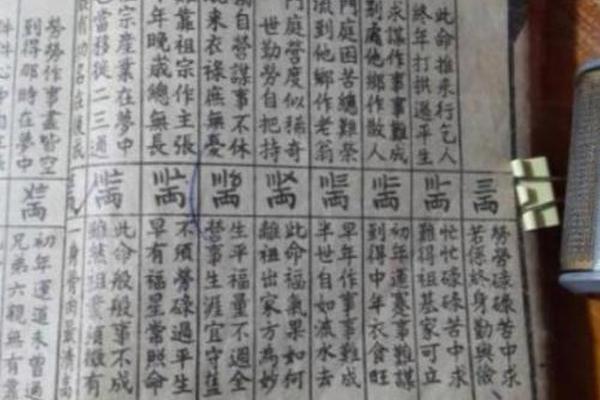 此命推來行乞人
終年打拱過平生
求謀作事事難成
處他鄉作散人
門庭困苦總難榮
流到他鄉作老翁
門庭營度似稀奇
世勤勞自把持
自營謀事不休
來衣祿庶無憂
靠祖宗作主張
年晚歲總無長
宗產業在夢中
當移徙二三通
有功名在後成
勞勞作事盡皆空
到得那時在夢中
三兩
勞勞碌碌苦中求
若得終身勤與儉
忙忙碌碌苦中求
難得祖基家可立
初年運蹇事難謀
到得中年衣食旺
早年作事事難成
半世自如流水去
此命福氣果如何
離祖出家方為妙
生平福量不週全
營事生涯宜守舊
不須勞碌過平生
早有福星常照命
此命般般事不成
雖然祖業須微有
一身骨肉最清高
初年運道未曾通
兄弟六親無有靠